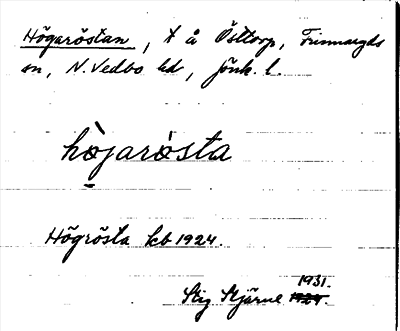 Högaröstan, t å Östtorp, Finnaryds
sn, N. Vedbo hd, Jönk. l.
hòjaròsta
Högrösta kb 1924.
1931.
Stig Stjärne 1924.